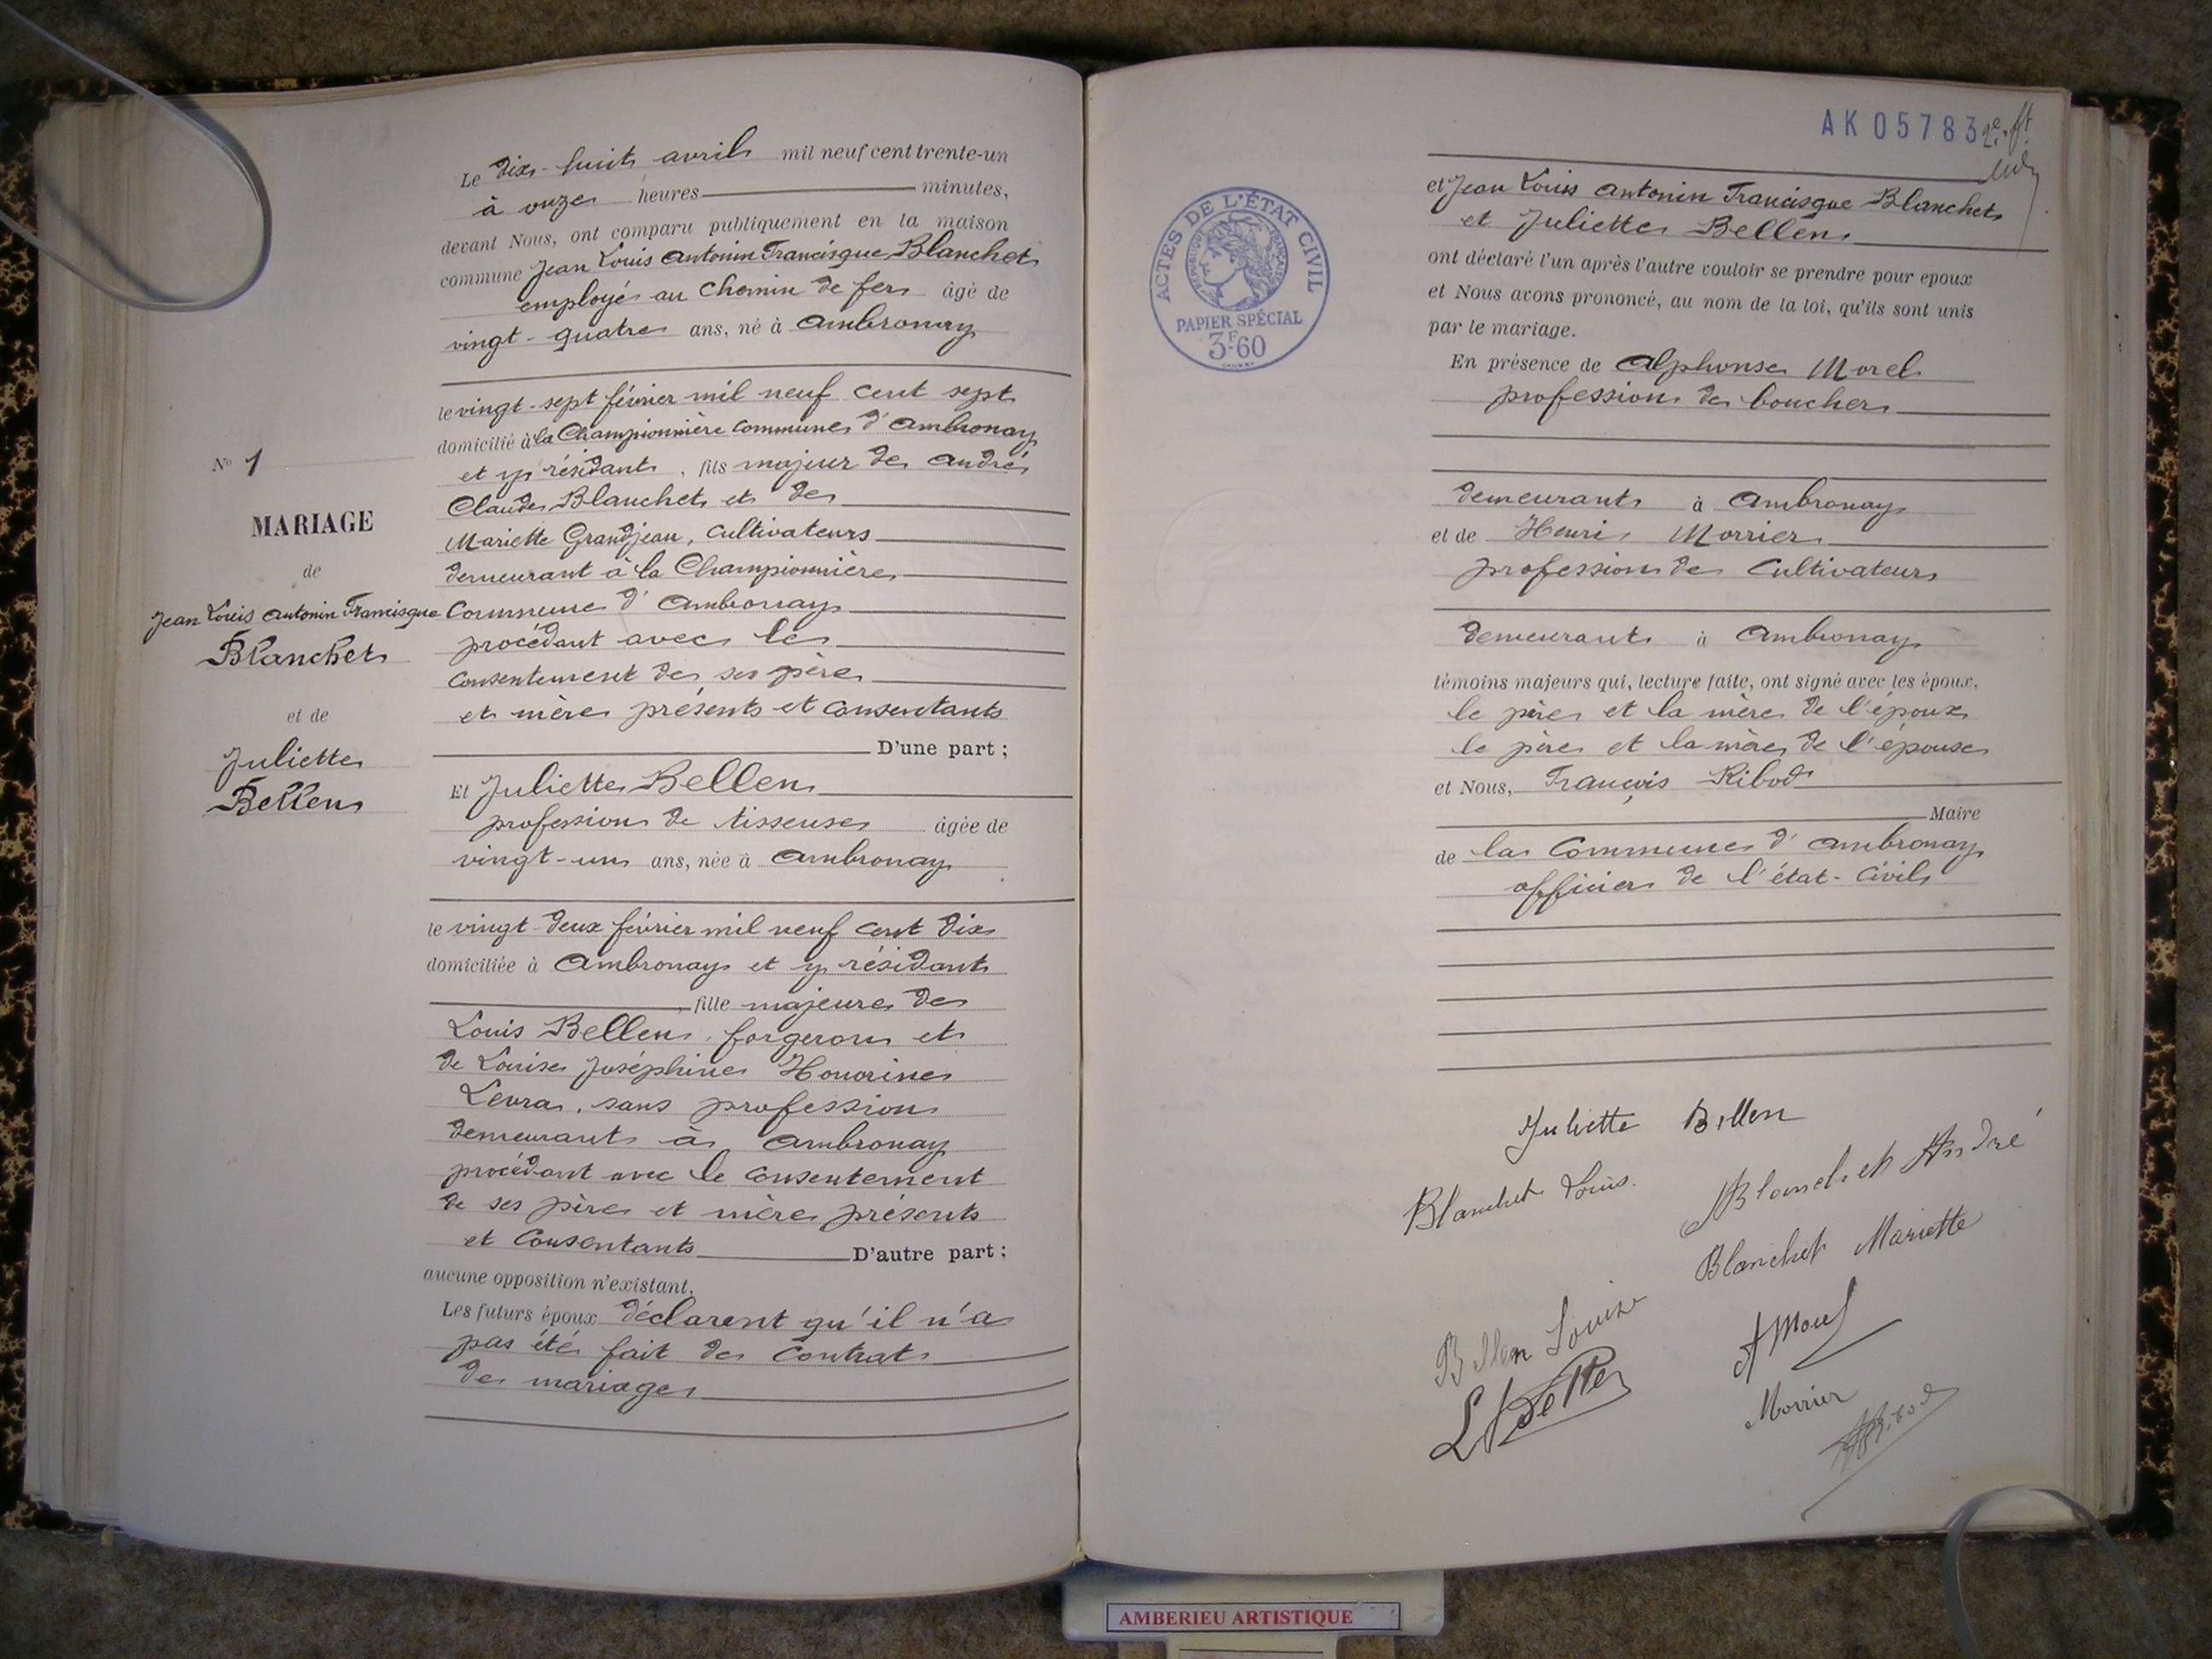 N° 1
MARIAGE
de
Jean Louis Antonin Francisque
Blanchet
et de
Juliette
Bellen
Le dix-huit avril mil neuf cent trente-un
à onze heures minutes,
devant Nous, ont comparu publiquement en la maison
commune Jean Louis Antonin Francisque Blanchet
employé au Chemin de fer âgé de
vingt-quatre ans, né à Ambronay
le vingt-sept février mil neuf cent sept
domicilié à la Championnière commune d'Ambronay
et y résidant, fils majeur de André
Claude Blanchet et de
Mariette Grandjean, Cultivateurs
demeurant à la Championnière
Commune d'Ambronay
procédant avec le
Consentement de ses père
et mère présents et consentants
D'une part;
Et Juliette Bellen
profession de tisseuse âgée de
vingt-un ans, née à Ambronay
le vingt-deux février mil neuf cent dix
domiciliée à Ambronay et y résidant
fille majeure de
Louis Bellen, forgeron et
de Louise Joséphine Honorine
Levra, sans profession
demeurant à Ambronay
procédant avec le consentement
de ses père et mère présents
et Consentants D'autre part;
aucune opposition n'existant.
Les futurs époux déclarent qu'il n'a
pas été fait de Contrat
de mariage
AK 05783
2e ft
ACTES DE L'ÉTAT CIVIL
RÉPUBLIQUE FRANÇAISE
PAPIER SPÉCIAL
3F60
et Jean Louis Antonin Francisque Blanchet
et Juliette Bellen
ont déclaré l'un après l'autre vouloir se prendre pour epoux
et Nous avons prononcé, au nom de la loi, qu'ils sont unis
par le mariage.
En présence de Alphonse Morel
profession de boucher
demeurant à Ambronay
et de Henri Morrier
profession de Cultivateur
demeurant à Ambronay
témoins majeurs qui, lecture faite, ont signé avec les époux,
le père et la mère de l'époux
le père et la mère de l'épouse
et Nous, François Ribod
Maire
de la Commune d'Ambronay
officier de l'état-Civil
Juliette Bellen
Blanchet Louis.
Blanchet André
Blanchet Mariette
Bellen Louise
A Morel
L Bellen
Morrier
F Ribod
AMBERIEU ARTISTIQUE